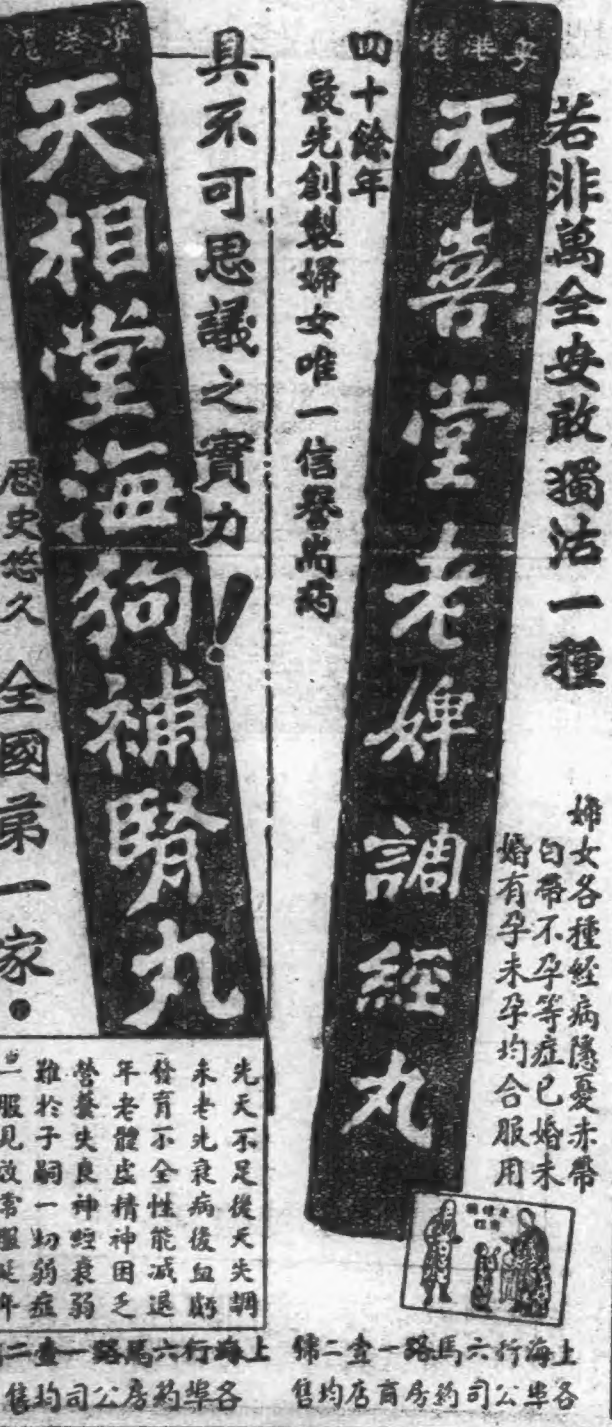 若非萬全安敢獨沽一種
粤港滬
天喜堂老婢調經丸
四十餘年
最先創製婦女唯一信譽尚药
婦女各種經病隱憂赤帶
白帶不孕等症已婚未
婚有孕未孕均合服用
上海行六馬路一壹二號
各埠公司药房商店均售
具不可思議之實力！
粤港滬
天相堂海狗補腎丸
歷史悠久 全國第一家
先天不足後天失調
未老先衰病後血虧
發育不全性能減退
年老體虛精神困乏
營養失良神經衰弱
難於子嗣一切弱症
一服見效常服延年
上海行六馬路一壹二
各埠药房公司均售